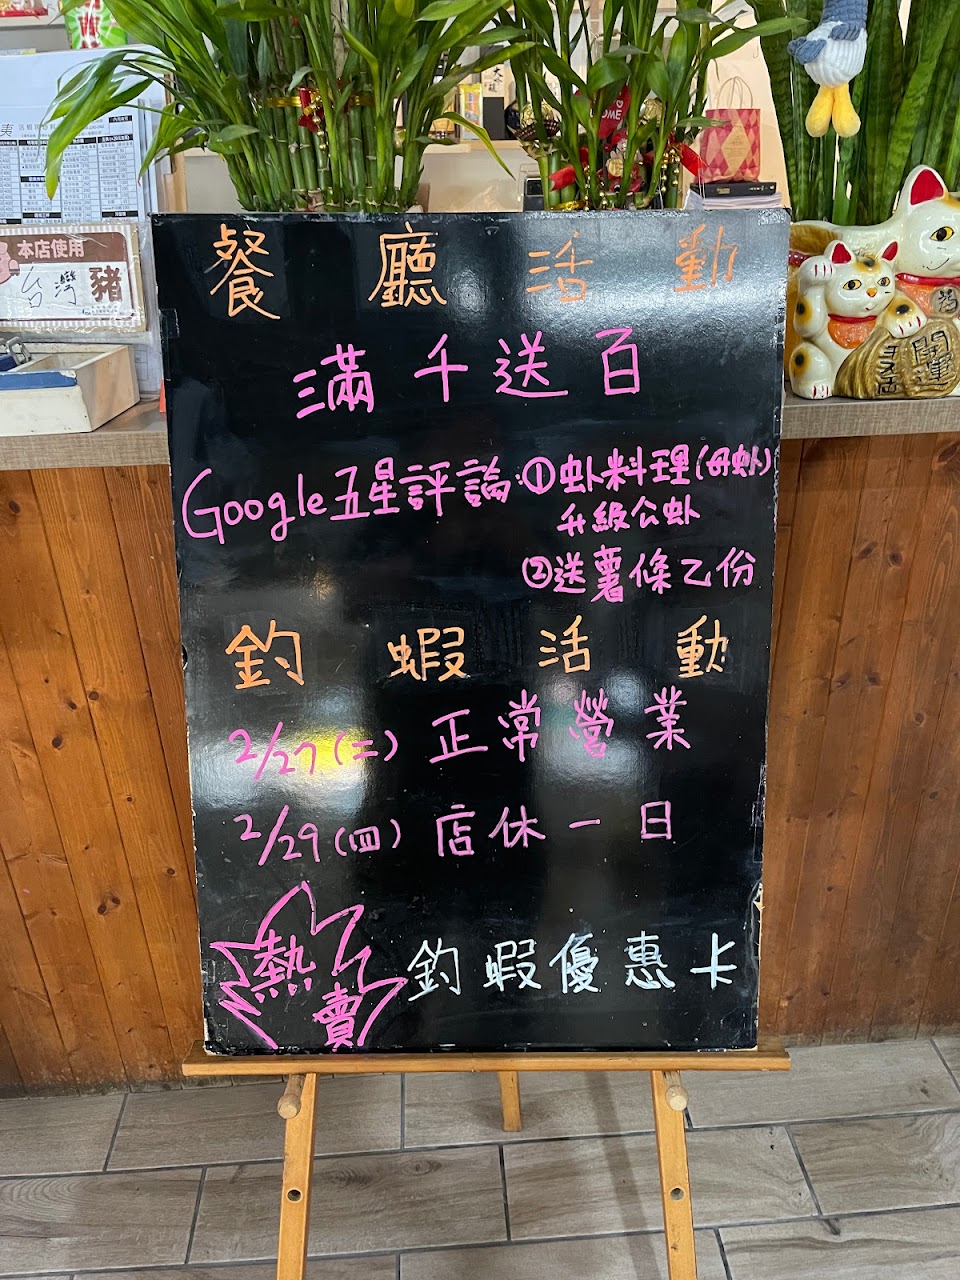 餐廳活動
滿千送百
Google五星評論:①虾料理(母虾)
升級公虾
②送薯條乙份
釣蝦活動
2/27(二)正常營業
2/29(四)店休一日
熱賣
釣蝦優惠卡
本店使用
台灣豬
開運
福